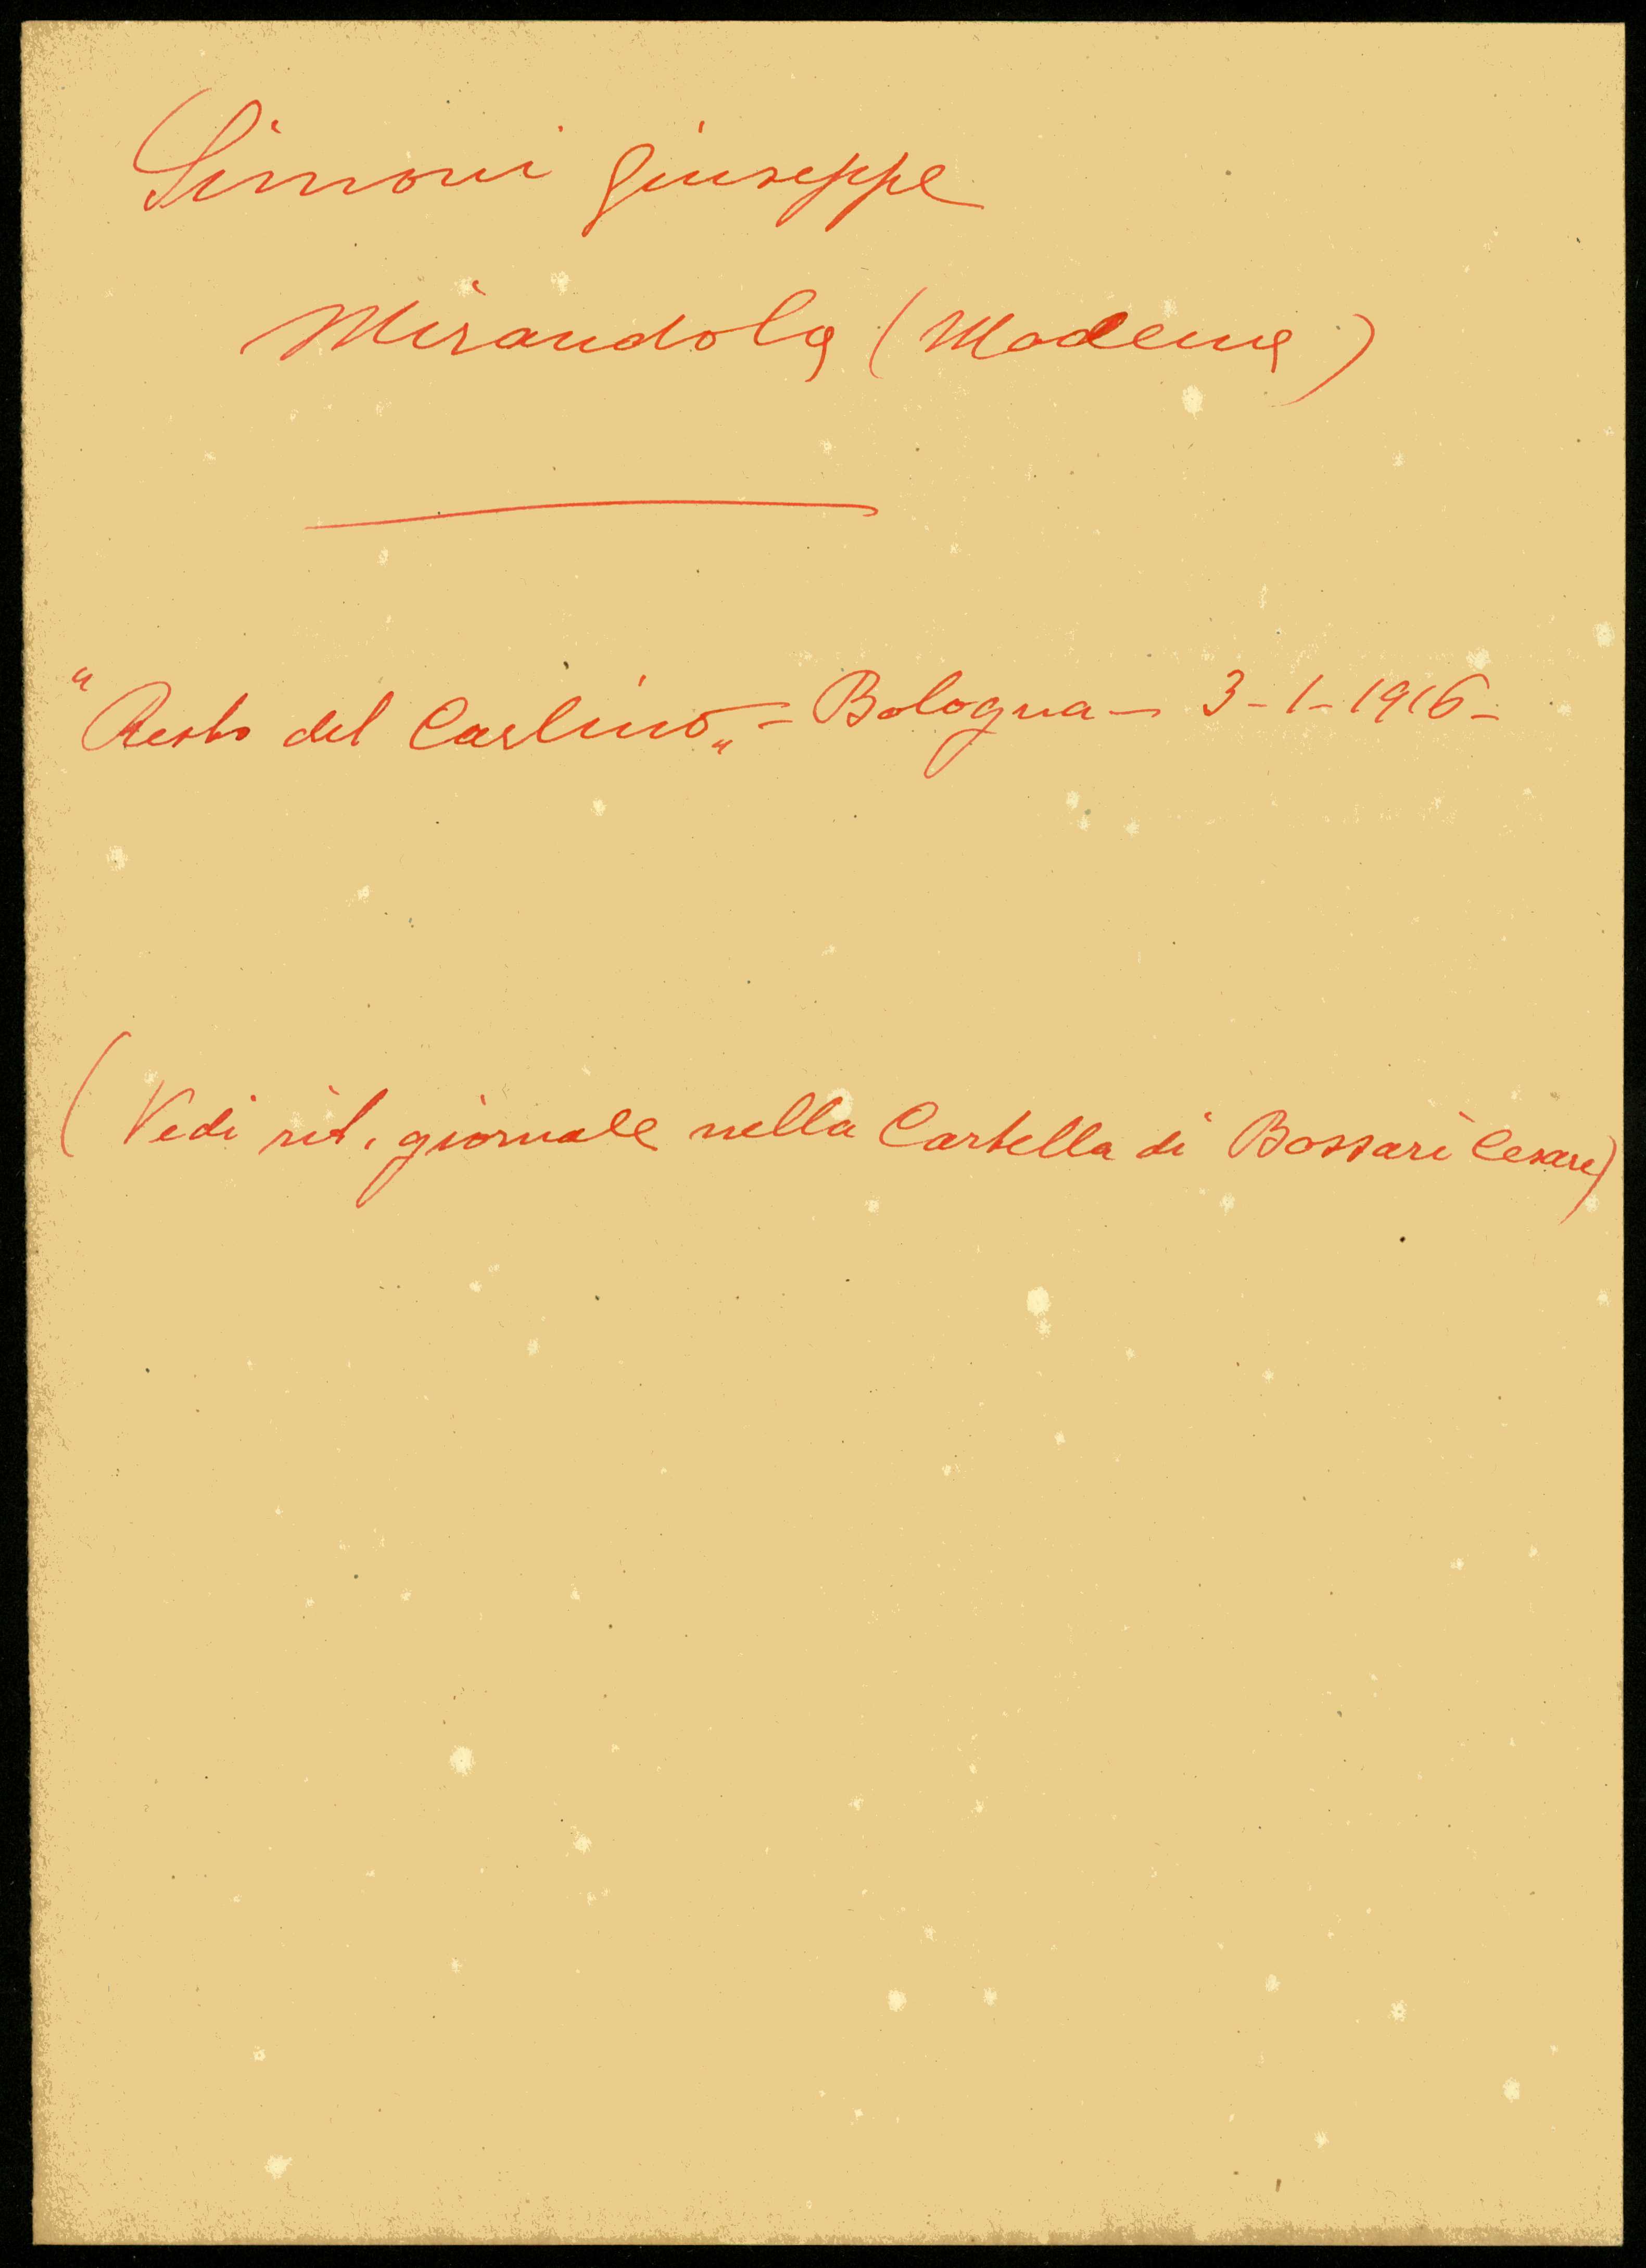 Simoni Giuseppe
Mirandola (Modena)
"Resto del Carlino„ = Bologna - 3-1-1916-
(Vedi rit. giornale nella Cartella di Bossari Cesare)